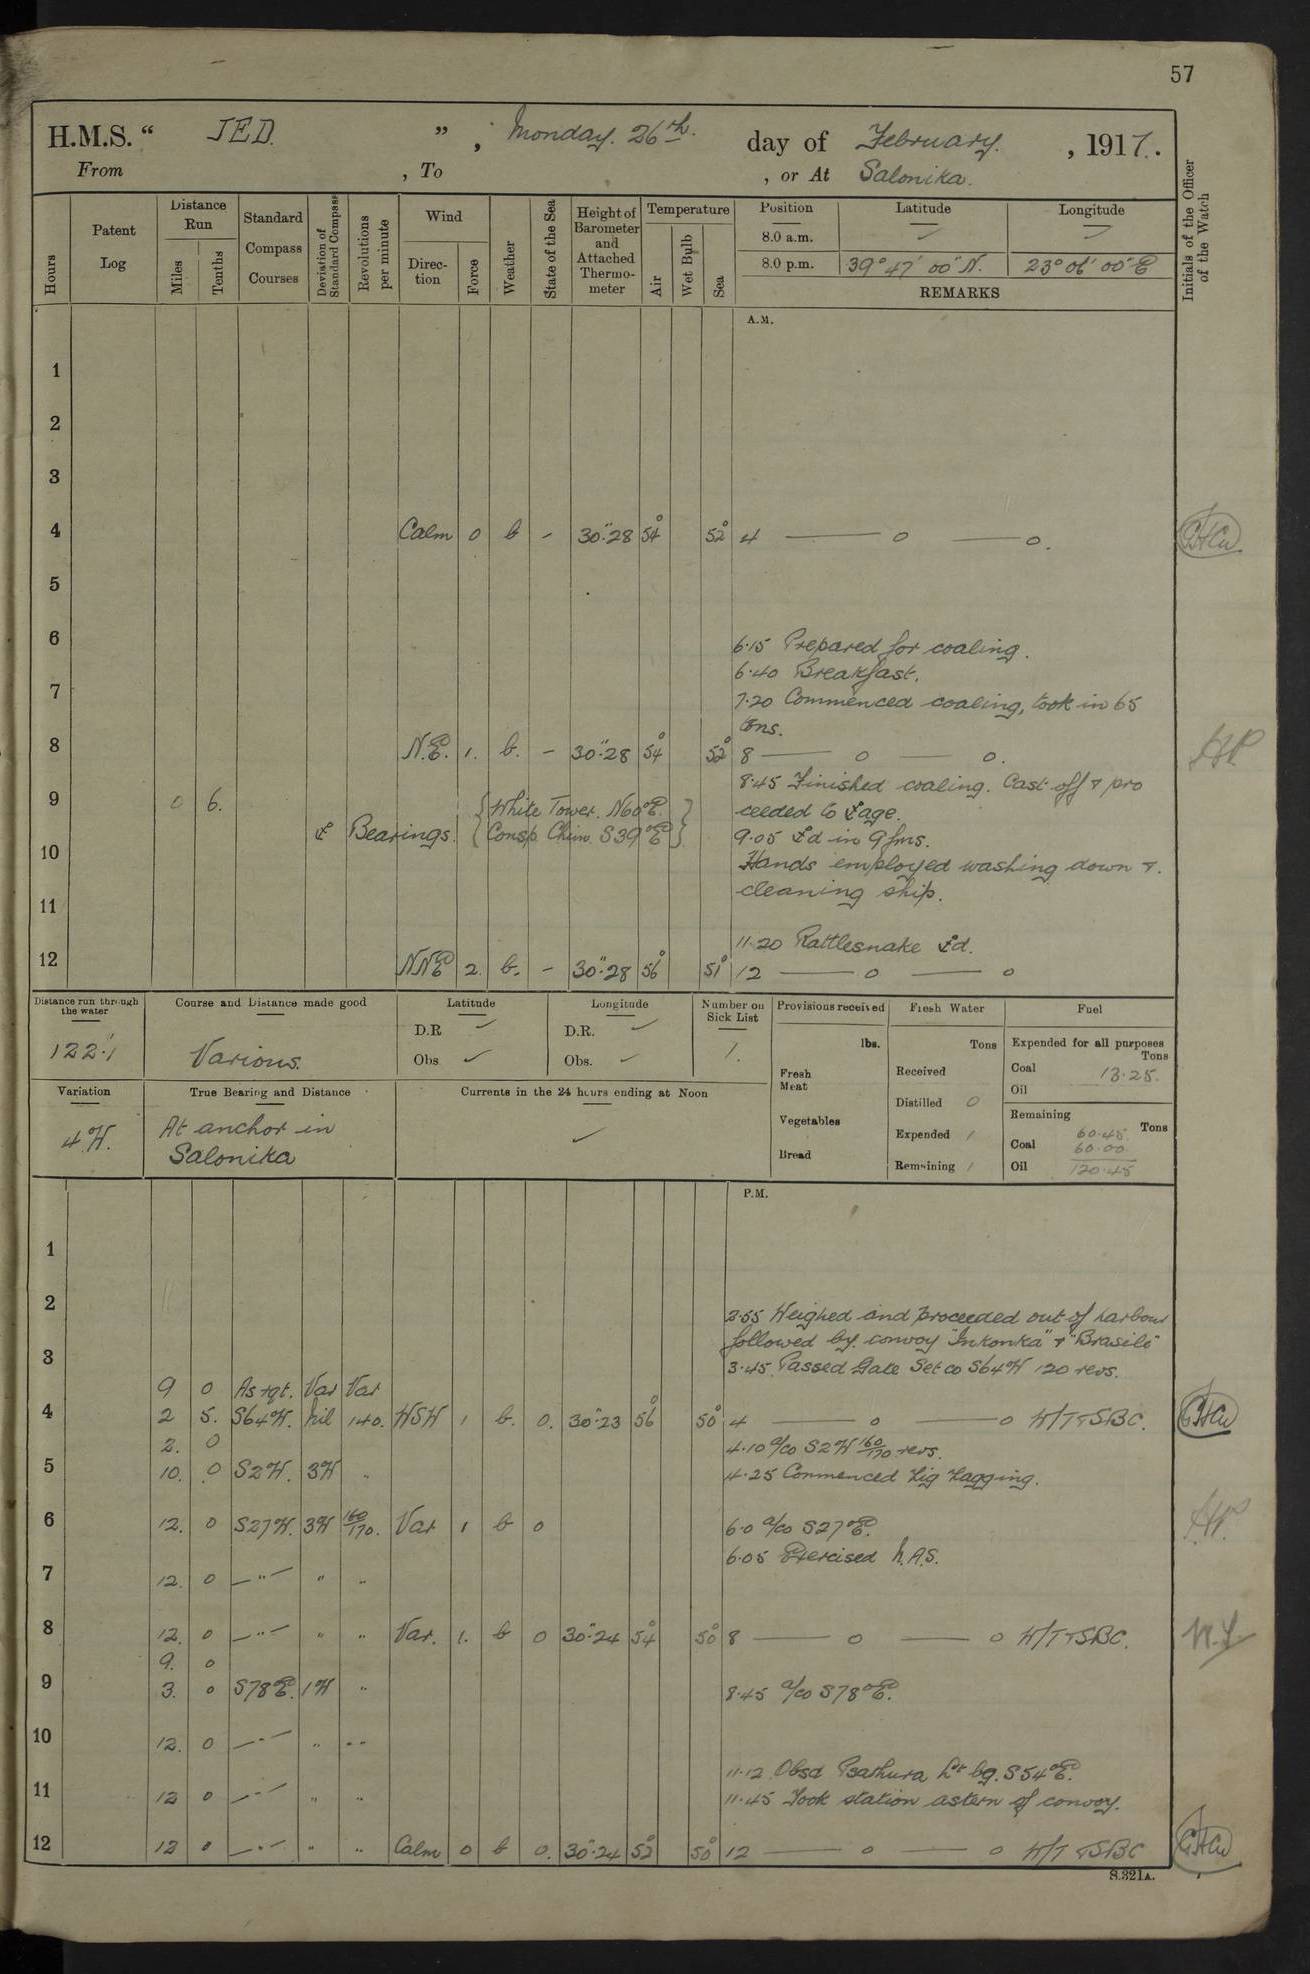 57
H.M.S. “ JED. ” , Monday. 26th. day of February. , 1917.
From , To , or At Salonika.
Hours
Patent Log
Distance Run
Miles
Tenths
Standard Compass Courses
Deviation of Standard Compass
Revolutions per minute
Wind
Direction
Force
Weather
State of the Sea
Height of Barometer and Attached Thermometer
Temperature
Air
Wet Bulb
Sea
Position Latitude Longitude
8.0 a.m. ✓ ✓
8.0 p.m. 39° 47' 00" N. 23° 06' 00" E
REMARKS
Initials of the Officer of the Watch
A.M.
1
2
3
4 Calm 0 b - 30".28 54° 52° 4 —— o —— o.
5
6
6.15 Prepared for coaling.
6.40 Breakfast.
7
7.20 Commenced coaling, took in 65
tons.
8 N.E. 1. b. - 30".28 54° 52° 8 —— o —— o. HP.
8.45 Finished coaling. Cast off & pro
9 0 6. White Tower. N60°E. ceeded to ⚓age.
⚓ Bearings. Consp. Chim. S39°E 9.05 ⚓d in 9 fms.
10
Hands employed washing down &.
cleaning ship.
11
11.20 Rattlesnake ⚓d.
12 NNE 2. b. - 30".28 56° 51° 12 —— o —— o
Distance run through the water
122.1
Course and Distance made good
Various.
Latitude
D.R ✓
Obs ✓
Longitude
D.R. ✓
Obs. ✓
Number on Sick List
1.
Provisions received
lbs.
Fresh Meat
Vegetables
Bread
Fresh Water
Tons
Received
Distilled 0
Expended /
Remaining /
Fuel
Expended for all purposes
Tons
Coal 13.25.
Oil
Remaining
Tons
60.45
Coal 60.00
Oil 120.45
Variation
4 W.
True Bearing and Distance
At anchor in
Salonika
Currents in the 24 hours ending at Noon
✓
P.M.
1
2
2.55 Weighed and proceeded out of harbour
followed by convoy "Inkonka" & "Brasile"
3
3.45. Passed Gate Set co S64W 120 revs.
9 0 As rqt. Var Var
4 2 5. S64W. Nil 140. WSW 1 b. 0. 30".23 56° 50° 4 —— o —— o W/T & SBC.
2. 0 4.10 a/co S2W 160/170 revs.
5 10. 0 S2W. 3W " 4.25 Commenced Zig Zagging.
6 12. 0 S27W. 3W 160/170. Var 1 b 0 6.0 a/co S27°E.
6.05 Exercised N.A.S.
7 12. 0 —"— " "
8 12. 0 —"— " " Var. 1. b 0 30".24 54° 50° 8 —— o —— o W/T & SBC.
9. 0
9 3. 0 S78E. 1W " 8.45 a/co S78°E.
10 12. 0 —"— " "
11.12 Obsd Psathura Lt bg. S54°E.
11 12 0 —"— " " 11.45 Took station astern of convoy.
12 12 0 —"— " " Calm 0 b 0. 30".24 52° 50° 12 —— o —— o W/T & SBC
S.321A.